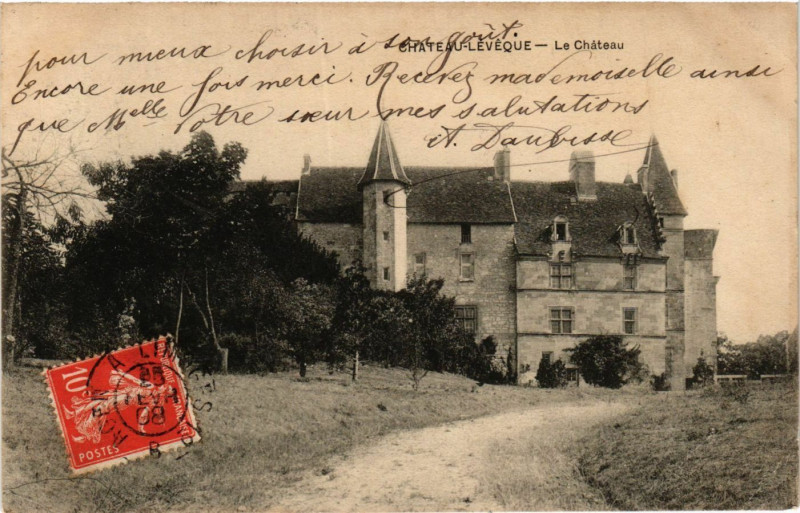 pour mieux choisir à son goût.
CHATEAU-LEVÊQUE — Le Château
Encore une fois merci. Recevez mademoiselle ainsi
que Melle Votre sœur mes salutations
A. Daubisse
10
POSTES
25
FEVR
08